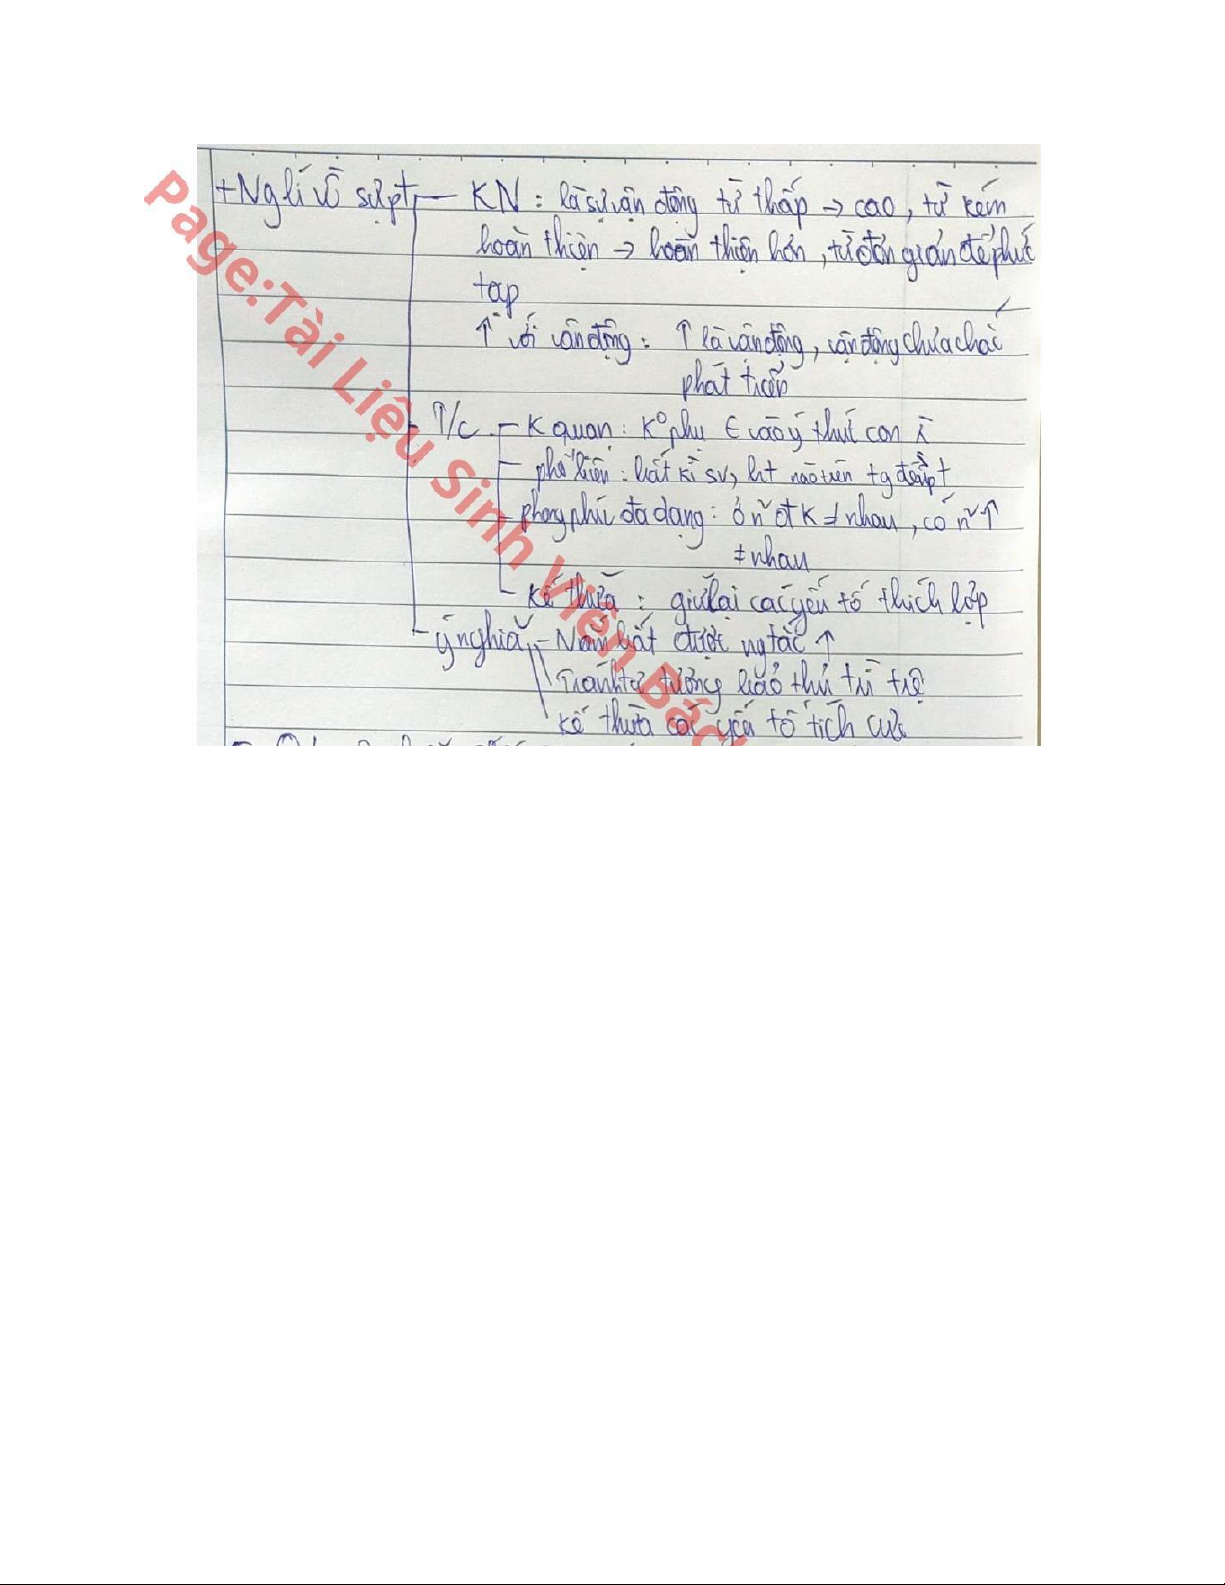 + Ng lí về sự pt — KN : là sự vận động từ thấp → cao , từ kém
hoàn thiện → hoàn thiện hơn , từ đơn giản đế phức
tạp
↑ với vận động : ↑ là vận động , vận động chưa chắc
phát triển
T/c — K quan : K° phụ ∈ vào ý thức con
— phổ biến : bất kì sv, ht nào trên tg đều pt
— phong phú đa dạng : ở n~ ot K ≠ nhau , có n~ ↑
≠ nhau
— Kế thừa : giữ lại các yếu tố thích hợp
— ý nghĩa — Nắm bắt được ng tắc ↑
Tránh tư tưởng bảo thủ trì trệ
kế thừa các yếu tố tích cực
Page:Tài Liệu Sinh Viên Bác